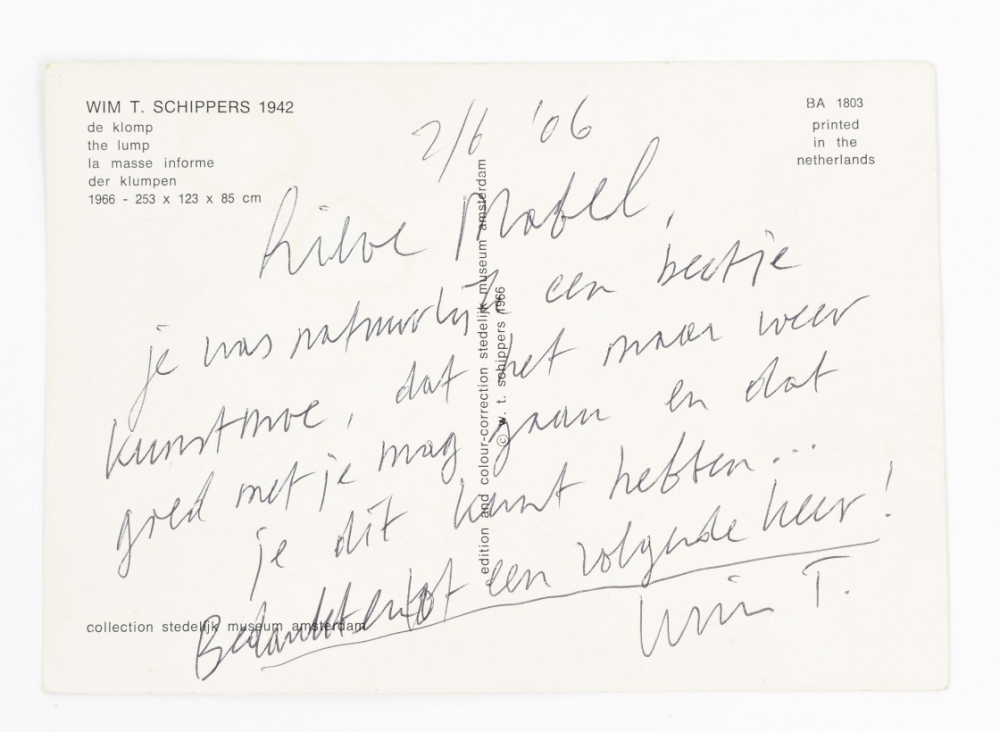 WIM T. SCHIPPERS 1942
de klomp
the lump
la masse informe
der klumpen
1966 - 253 x 123 x 85 cm
BA 1803
printed
in the
netherlands
2/6 '06
Lieve Mabel,
je was natuurlijk een beetje
kunstmoe, dat het maar weer
goed met je mag gaan en dat
je dit kunt hebben...
Bedankt en tot een volgende keer!
Wim T.
edition and colour-correction stedelijk museum amsterdam
© w. t. schippers 1966
collection stedelijk museum amsterdam